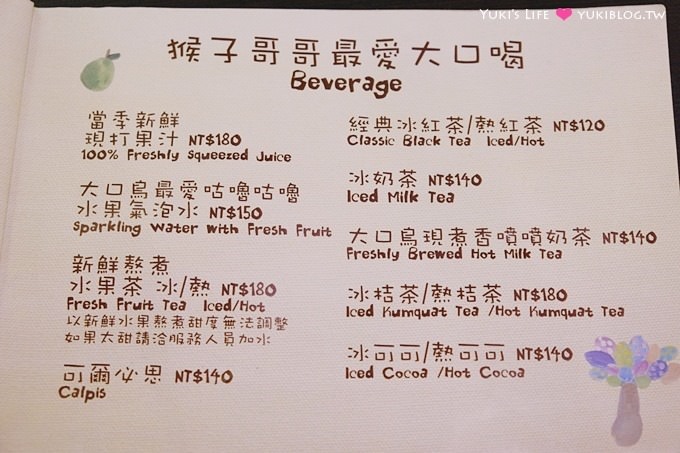 Yuki's Life ❤ yukiblog.tw
猴子哥哥最愛大口喝
Beverage
當季新鮮
現打果汁 NT$180
100% Freshly Squeezed Juice
大口鳥最愛咕嚕咕嚕
水果氣泡水 NT$150
Sparkling Water with Fresh Fruit
新鮮熬煮
水果茶 冰/熱 NT$180
Fresh Fruit Tea Iced/Hot
以新鮮水果熬煮甜度無法調整
如果太甜請洽服務人員加水
可爾必思 NT$140
Calpis
經典冰紅茶/熱紅茶 NT$120
Classic Black Tea Iced/Hot
冰奶茶 NT$140
Iced Milk Tea
大口鳥現煮香噴噴奶茶 NT$140
Freshly Brewed Hot Milk Tea
冰桔茶/熱桔茶 NT$180
Iced Kumquat Tea /Hot Kumquat Tea
冰可可/熱可可 NT$140
Iced Cocoa /Hot Cocoa